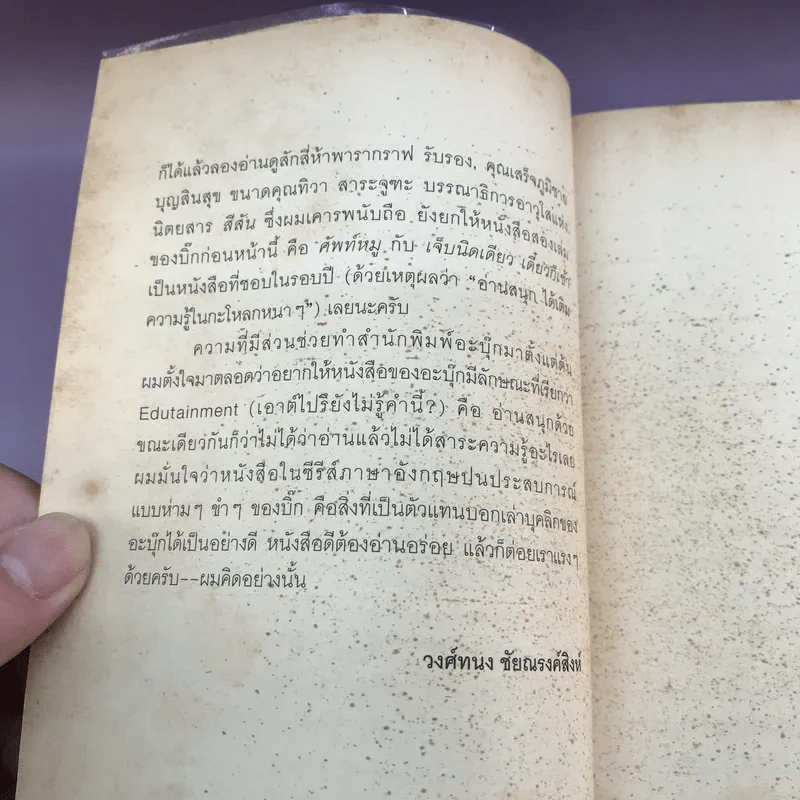 ก็ได้แล้วลองอ่านดูสักสี่ห้าพารากราฟ รับรอง, คุณเสร็จภูมิชาย
บุญสินสุข ขนาดคุณทิวา สาระจูฑะ บรรณาธิการอาวุโสแห่ง
นิตยสาร สีสัน ซึ่งผมเคารพนับถือ ยังยกให้หนังสือสองเล่ม
ของบิ๊กก่อนหน้านี้ คือ ศัพท์หมู กับ เจ็บนิดเดียว เดี๋ยวก็เช้า
เป็นหนังสือที่ชอบในรอบปี (ด้วยเหตุผลว่า “อ่านสนุก ได้เติม
ความรู้ในกะโหลกหนาๆ”) เลยนะครับ
ความที่มีส่วนช่วยทำสำนักพิมพ์อะบุ๊กมาตั้งแต่ต้น
ผมตั้งใจมาตลอดว่าอยากให้หนังสือของอะบุ๊กมีลักษณะที่เรียกว่า
Edutainment (เอาต์ไปรึยังไม่รู้คำนี้?) คือ อ่านสนุกด้วย
ขณะเดียวกันก็ว่าไม่ได้ว่าอ่านแล้วไม่ได้สาระความรู้อะไรเลย
ผมมั่นใจว่าหนังสือในซีรีส์ภาษาอังกฤษปนประสบการณ์
แบบห่ามๆ ขำๆ ของบิ๊ก คือสิ่งที่เป็นตัวแทนบอกเล่าบุคลิกของ
อะบุ๊กได้เป็นอย่างดี หนังสือดีต้องอ่านอร่อย แล้วก็ต่อยเราแรงๆ
ด้วยครับ--ผมคิดอย่างนั้น
วงศ์ทนง ชัยณรงค์สิงห์